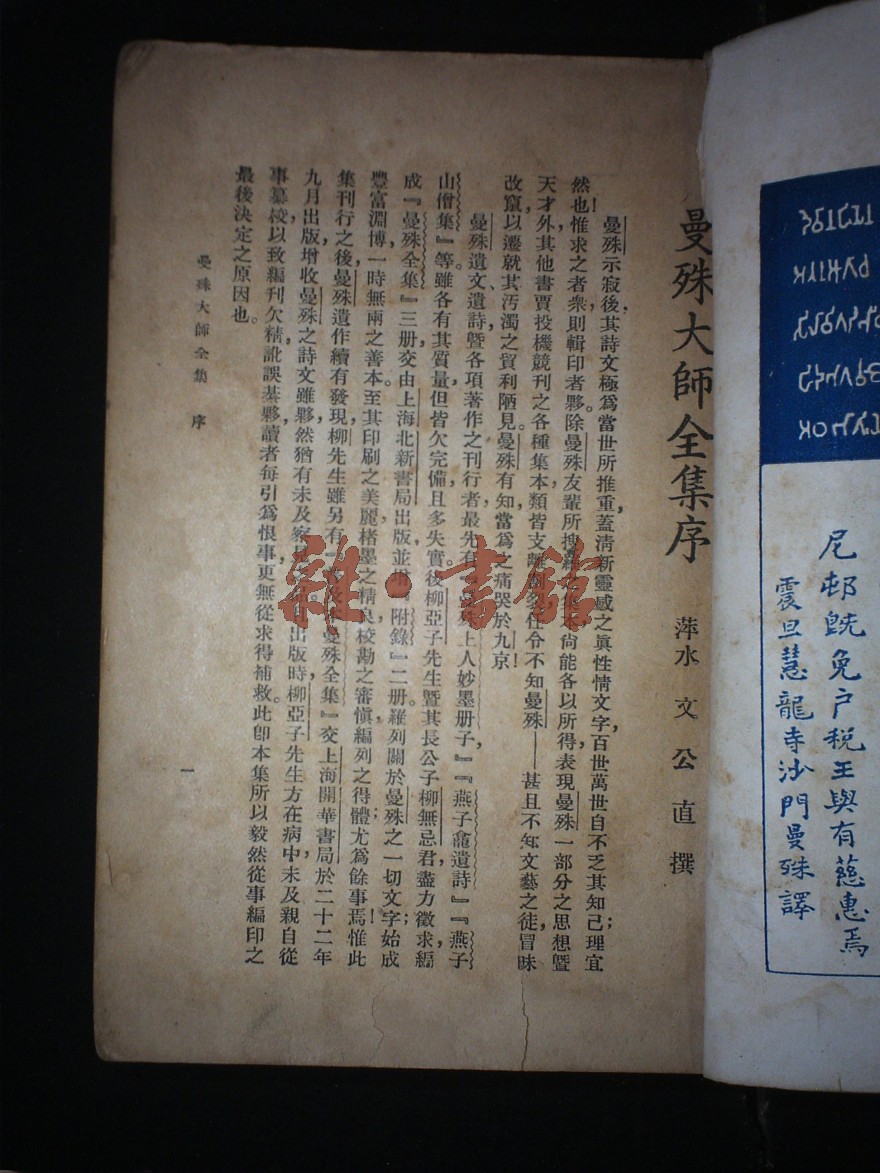 曼殊大師全集序
萍水 文公直 撰
曼殊示寂後，其詩文極爲當世所推重，蓋淸新靈感之眞性情文字，百世萬世自不乏其知己；理宜
然也！惟求之者衆，則輯印者夥。除曼殊友輩所搜 尚能各以所得，表現曼殊一部分之思想曁
天才外，其他書賈投機競刊之各種集本，類皆支離 任令不知曼殊——甚且不知文藝之徒，冒昧
改竄，以遷就其汚濁之貿利陋見。曼殊有知，當爲之痛哭於九京！
曼殊遺文、遺詩曁各項著作之刊行者，最先有 曼殊上人妙墨册子』，『燕子龕遺詩』，『燕子
山僧集』等。雖各有其質量，但皆欠完備，且多失實。後柳亞子先生曁其長公子柳無忌君盡力徵求，編
成『曼殊全集』三册，交由上海北新書局出版，並增『附錄』二册，羅列關於曼殊之一切文字；始成
豐富淵博，一時無兩之善本。至其印刷之美麗，楮墨之精良，校勘之審愼，編列之得體，尤爲餘事焉！惟此
集刊行之後，曼殊遺作續有發現，柳先生雖另有 曼殊全集』交上海開華書局於二十二年
九月出版，增收曼殊之詩文雖夥，然猶有未及 出版時，柳亞子先生方在病中，未及親自從
事纂校，以致編刊欠精，訛誤綦夥，讀者每引爲恨事，更無從求得補救。此卽本集所以毅然從事編印之
最後決定之原因也。
曼殊大師全集 序
一
雜·書館
尼邨旣免户税王與有慈惠焉
震旦慧龍寺沙門曼殊譯